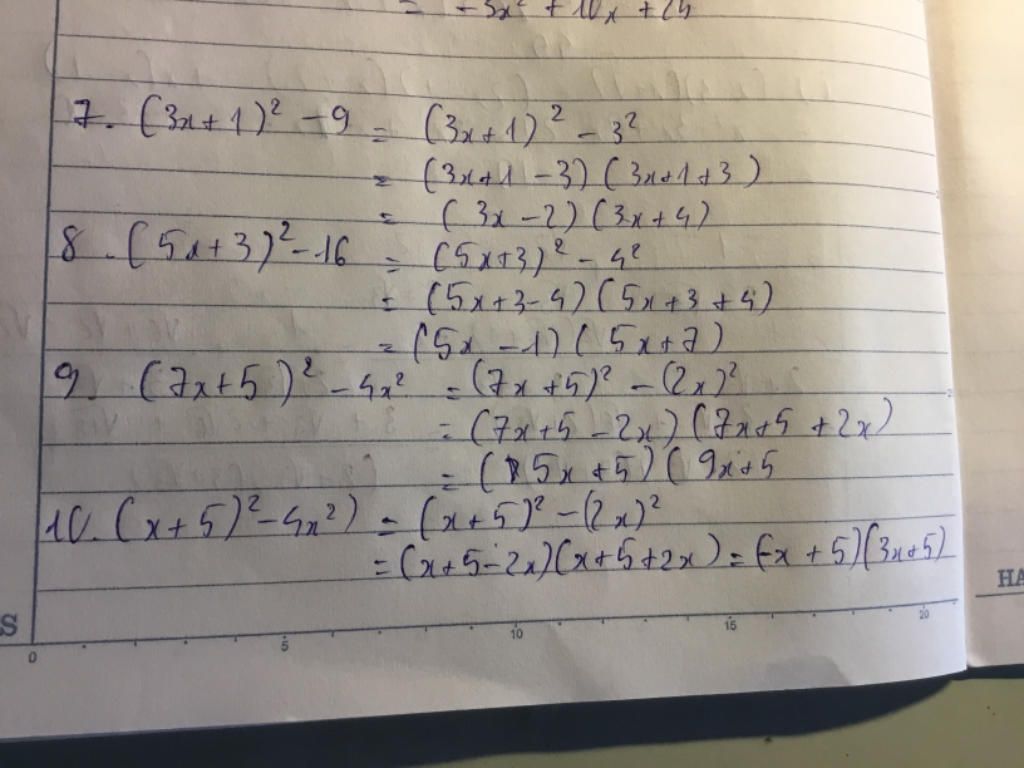 = -3x² + 10x + 25
7. (3x+1)² - 9 = (3x+1)² - 3²
= (3x+1-3)(3x+1+3)
= (3x-2)(3x+4)
8. (5x+3)² - 16 = (5x+3)² - 4²
= (5x+3-4)(5x+3+4)
= (5x-1)(5x+7)
9. (7x+5)² - 4x² = (7x+5)² - (2x)²
= (7x+5-2x)(7x+5+2x)
= (5x+5)(9x+5
10. (x+5)² - 4x²) = (x+5)² - (2x)²
= (x+5-2x)(x+5+2x) = (-x+5)(3x+5)
HA
S
0 5 10 15 20